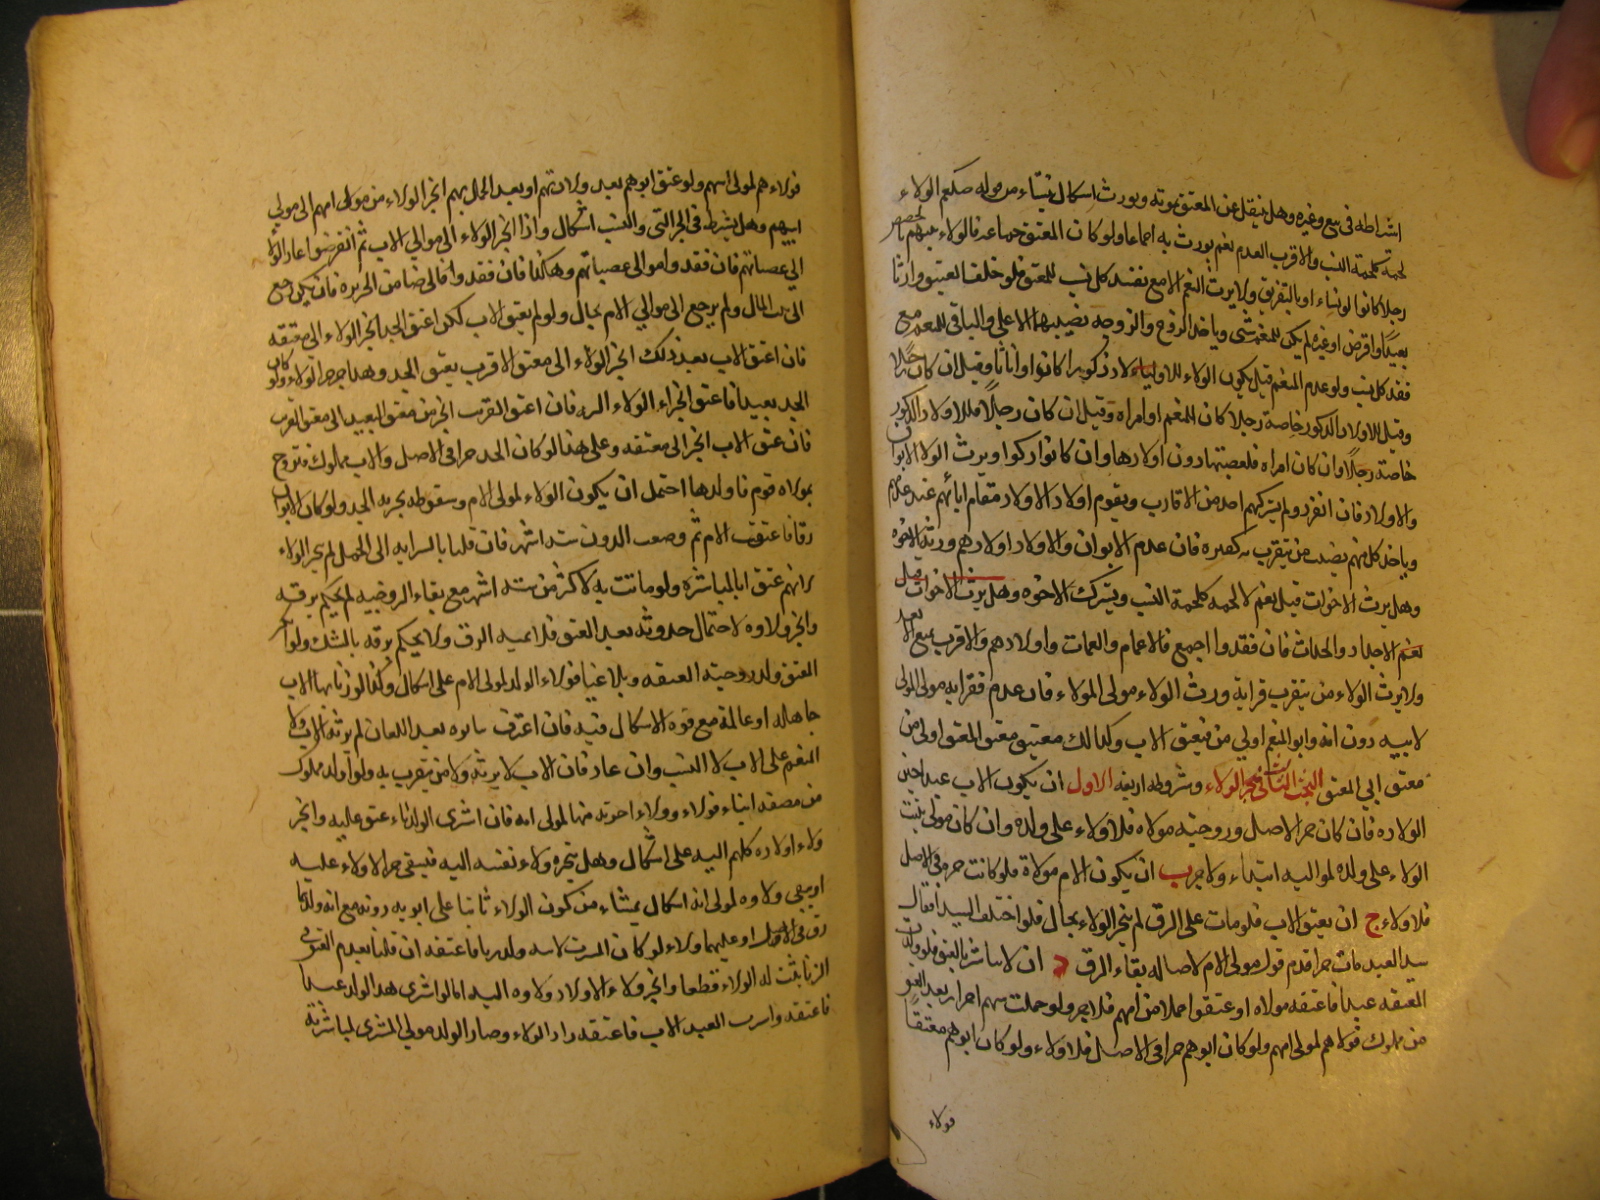 اشراطه فى بيع وغيره وهل ينتقل عن المعتق بموته ويورث اشكال ينشاء من قوله صلعم الولاء
لحمة كلحمة النسب والاقرب العدم نعم يورث به اجماعا ولو كان المعتق جماعة فالولاء بينهم بالحصص
رجلا كانوا او نساء او بالتفريق ولا يرث المنعم الا مع فقد كل نسب للمعتق فلو خلف العتيق وارثا
بعيدا واقرض او غيره لم يكن للمنعم شى وياخذ الزوج والزوجه نصيبهما الاعلى والباقى للمنعم مع
فقد كل نسب ولو عدم المنعم قيل يكون الولاء للاولاد ذكورا كانوا او اناثا وقيل ان كان رجلا
وقيل للاولاد الذكور خاصة رجلا كان المنعم او امراه وقيل ان كان رجلا فللاولاد الذكور
خاصة رجلا وان كان امراه فلعصبتها دون اولادها وان كانوا ذكورا ويرث الولاء الابوان
والاولاد فان انفرد ولم يشركهم احد من الاقارب ويقوم اولاد الاولاد مقام ابائهم عند عدمهم
وياخذ كل منهم نصيب من يتقرب به كغيره فان عدم الابوان والاولاد واولادهم ورثه الاخوه
وهل يرث الاخوات قيل نعم لانه لحمه كلحمة النسب ويشترك الاخوه وهل يرث الاخوات قيل
نعم الاجداد والجدات فان فقدوا اجمع فالاعمام والعمات واولادهم والاقرب يمنع الابعد
ولا يرث الولاء من يتقرب قرابة ورث الولاء مولى المولاء فان عدم فقرابه مولى المولى
لابيه دون امه وابو المنعم اولى من معتق الاب وكذلك معتق معتق المعتق اولى من
معتق ابى المعتق البحث الثانى فى جر الولاء وشروطه اربعه الاول ان يكون الاب عبدا حين
الولاده فان كان حر الاصل وزوجته مولاه فلا ولاء على ولده وان كان مولى ثبت
الولاء على ولده لمواليه ابتداء ولا جر ب ان يكون الام مولاة فلو كانت حره فى الاصل
فلا ولاء ج ان يعتق الاب فلو مات على الرق لم ينجر الولاء بحال فلو اختلف السيدان فقال
سيد العبد مات حرا قدم قول مولى الام لاصاله بقاء الرق د ان لا يباشر بالعتق فلو ولدت
المعتقه عبدا فاعتقه مولاه او عتقوا حملا من امهم فلا جر ولو حملت بهم احرار بعد العتق
من مملوك فولاهم لمولى امهم ولو كان ابوهم حرا فى الاصل فلا ولاء ولو كان ابوهم معتقا
فولاء
فولاءهم لمولى اسهم ولو عتق ابوهم بعد ولادتهم او بعد الحمل بهم انجر الولاء من مولى امهم الى مولى
ابيهم وهل يشترط فى الجر التى والنسب اشكال واذا انجر الولاء الى موالى الاب ثم انقرضوا عاد الولاء
الى عصباتهم فان فقدوا فموالى عصباتهم وهكذا فان فقدوا فالى ضامن الجريره فان لم يكن رجع
الى بيت المال ولم يرجع الى موالى الام بحال ولو لم يعتق الاب لكن اعتق الجد انجر الولاء الى معتقه
فان اعتق الاب بعد ذلك انجر الولاء الى معتق الاقرب يعتق الجد وهذا جر جر الولاء ولو كان
الجد بعيدا فاعتق انجر الولاء اليه فان اعتق القريب انجر من معتق البعيد الى معتق القريب
فان عتق الاب انجر الى معتقه وعلى هذا لو كان الجد حرا فى الاصل والاب مملوك فتزوج
بمولاه قوم فاولدها احتمل ان يكون الولاء لمولى الام وسقوطه بجره الجد ولو كان الابوان
رقا فاعتقت الام ثم وضعت لدون سته اشهر فان قلنا بالسرايه الى الحمل لم ينجر الولاء
لانهم عتق ابا لمباشرة ولو ماتت به لاكثر من سته اشهر مع بقاء الزوجيه لم يحكم برقه
وانجر ولاوه لاحتمال حدوثه بعد العتق فلا يمسه الرق ولا يحكم برقه بالشك ولو انكر
المعتق ولد زوجته المعتقه وتلاعنا فولاء الولد لمولى الام على اشكال وكذا لو زنا بها الاب
جاهله او عالمة مع قوه الاشكال فيه فان اعترف به ابوه بعد اللعان لم يرثه الاب ولا
المنعم على الاب لان النسب وان عاد فان الاب لا يرثه ولا من يتقرب به ولو اولد مملوك
من معتقه ابناء فولاء وولاء اخوته منها لمولى امه فان اشترى الولد اباء عتق عليه وانجر
ولاء اولاده كلهم اليه على اشكال وهل ينجر ولاء نفسه اليه فيبقى حرا لا ولاء عليه
او يبقى ولاوه لمولى امه اشكال ينشاء من كون الولاء ثابتا على ابويه دونه مع انه ولد لهما
رق فى الاصل او عليهما ولاء لو كان اشترت لاسه ولد زنا فاعتقه ان قلنا بعدم القربى
الزنا بثت له الولاء قطعا وانجر ولاء الاولاد وولاوه اليه اما لو اشترى هذا الولد عبدا
فاعتقه واشترى العبد الاب فاعتقه دار الولاء وصار الولد مولى المشترى لمباشرته